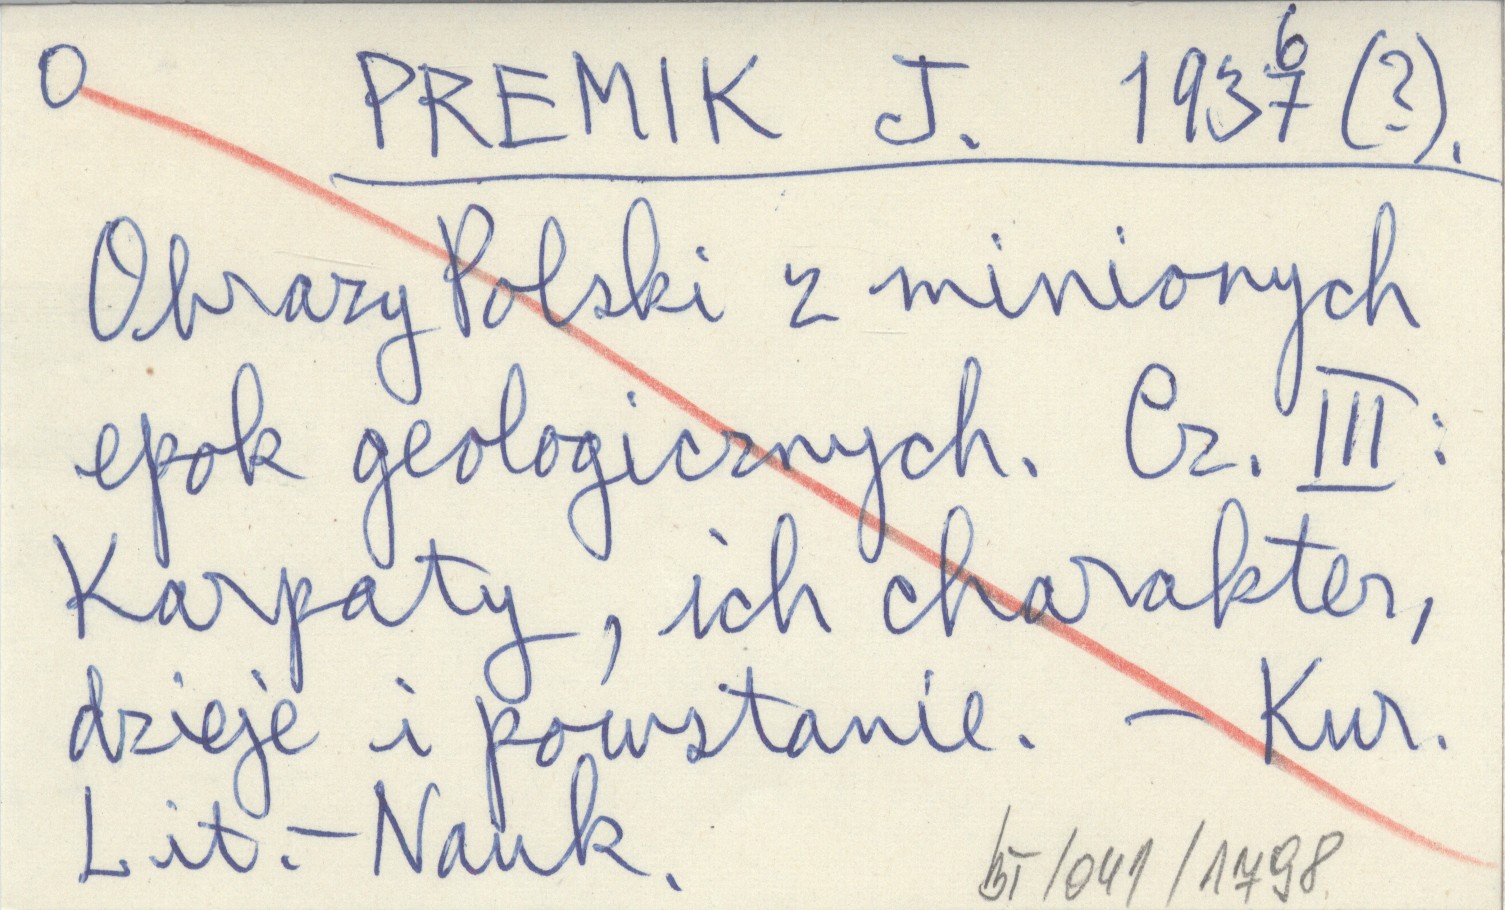 O PREMIK J. 1936 (?).
Obrazy Polski z minionych
epok geologicznych. Cz. III:
Karpaty, ich charakter,
dzieje i powstanie. - Kur.
Lit.-Nauk.
/041/1798